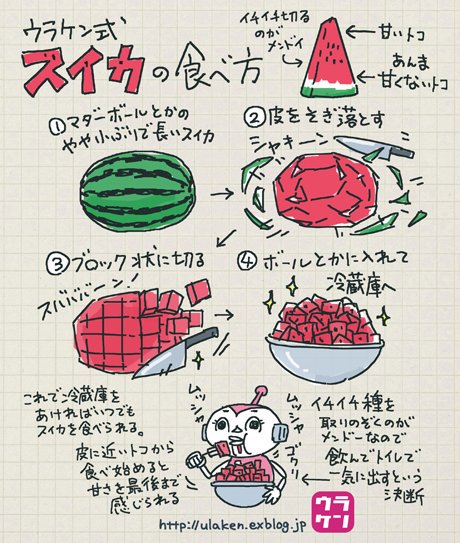 ウラケン式
スイカの食べ方
イチイチ切る
のが
メンドイ
甘いトコ
あんま
甘くないトコ
①マダーボールとかの
やや小ぶりで長いスイカ
②皮をそぎ落とす
シャキーン
③ブロック状に切る
ズババババーン!
④ボールとかに入れて
冷蔵庫へ
これで冷蔵庫を
あければいつでも
スイカを食べられる。
皮に近いトコから
食べ始めると
甘さを最後まで
感じられる
ムッシャ
ムッシャ
ゴクリ
イチイチ種を
取りのぞくのが
メンドーなので
飲んでトイレで
一気に出すという
決断
ウラ
ケン
http://ulaken.exblog.jp